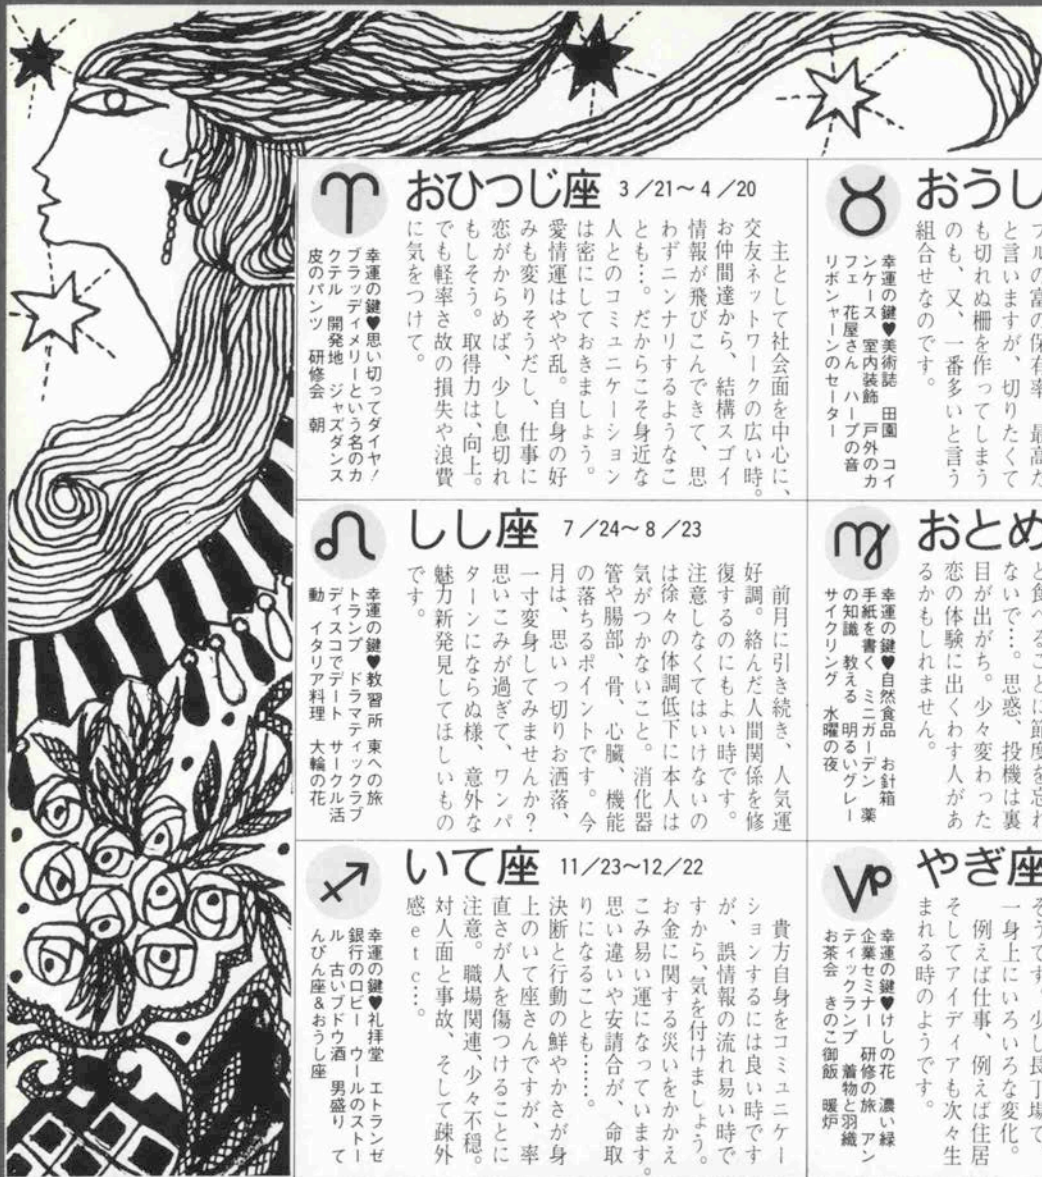 おひつじ座 3/21～4/20
主として社会面を中心に、
交友ネットワークの広い時。
お仲間達から、結構スゴイ
情報が飛びこんできて、思
わずニンナリするようなこ
とも…。だからこそ身近な
人とのコミュニケーション
は密にしておきましょう。
愛情運はやや乱。自身の好
みも変りそうだし、仕事に
恋がからめば、少し息切れ
もしそう。取得力は、向上。
でも軽率さ故の損失や浪費
に気をつけて。
幸運の鍵♥思い切ってダイヤ!
ブラッディメリーという名のカ
クテル 開発地 ジャズダンス
皮のパンツ 研修会 朝
おうし
ブルの富の保有率、最高だ
と言いますが、切りたくて
も切れぬ柵を作ってしまう
のも、又、一番多いと言う
組合せなのです。
幸運の鍵♥美術誌 田園 コイ
ンケース 室内装飾 戸外のカ
フェ 花屋さん ハープの音
リボンャーンのセーター
しし座 7/24～8/23
前月に引き続き、人気運
好調。絡んだ人間関係を修
復するのにもよい時です。
注意しなくてはいけないの
は徐々の体調低下に本人は
気がつかないこと。消化器
管や腸部、骨、心臓、機能
の落ちるポイントです。今
月は、思いっ切りお洒落、
一寸変身してみませんか?
思いこみが過ぎて、ワンパ
ターンにならぬ様、意外な
魅力新発見してほしいもの
です。
幸運の鍵♥教習所 東への旅
トランプ ドラマティックラブ
ディスコでデート サークル活
動 イタリア料理 大輪の花
おとめ
と食べることに節度を忘れ
ないで…。思惑、投機は裏
目が出がち。少々変わった
恋の体験に出くわす人があ
るかもしれません。
幸運の鍵♥自然食品 お針箱
手紙を書く ミニガーデン 薬
の知識 教える 明るいグレー
サイクリング 水曜の夜
いて座 11/23～12/22
貴方自身をコミュニケー
ションするには良い時です
が、誤情報の流れ易い時で
すから、気を付けましょう。
お金に関する災いをかかえ
こみ易い運になっています。
思い違いや安請合が、命取
りになることも……。
決断と行動の鮮やかさが身
上のいて座さんですが、率
直さが人を傷つけることに
注意。職場関連、少々不穏。
対人面と事故、そして疎外
感etc…。
幸運の鍵♥礼拝堂 エトランゼ
銀行のロビー ウールのストー
ル 古いブドウ酒 男盛り て
んびん座&おうし座
やぎ座
そうです。少し長丁場で
一身上にいろいろな変化。
例えば仕事、例えば住居
そしてアイディアも次々生
まれる時のようです。
幸運の鍵♥けしの花 濃い緑
企業セミナー 研修の旅 アン
ティックランプ 着物と羽織
お茶会 きのこ御飯 暖炉